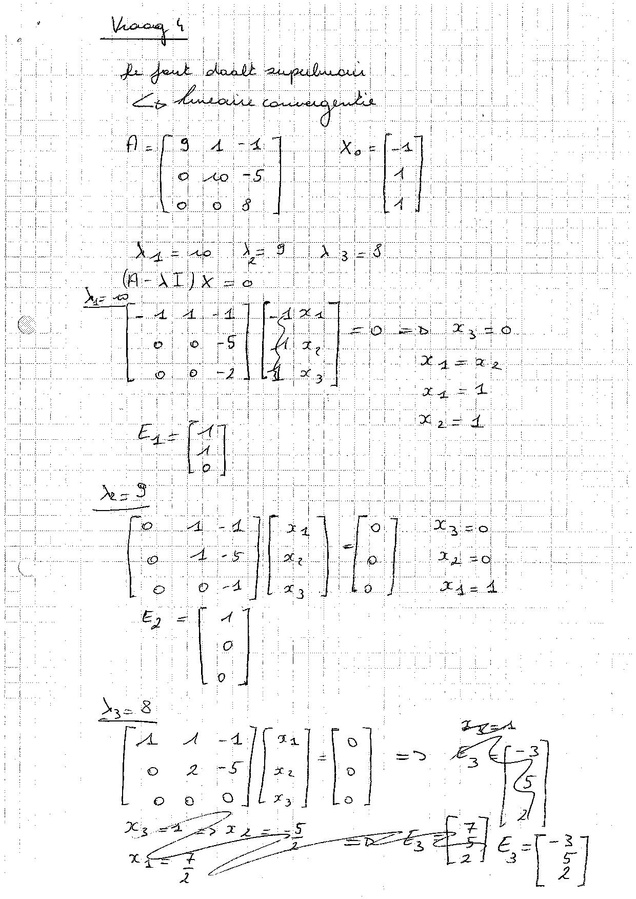 Vraag 4
de fout daalt
↳ lineaire convergentie
A = [ 9 1 -1 ; 0 10 -5 ; 0 0 8 ] X₀ = [ -1 ; 1 ; 1 ]
λ1 = 10 λ2 = 9 λ3 = 8
(A - λI) X = 0
λ1 = 10
[ -1 1 -1 ; 0 0 -5 ; 0 0 -2 ] [ x1 ; x2 ; x3 ] = 0 => x3 = 0
x1 = x2
x1 = 1
x2 = 1
E1 = [ 1 ; 1 ; 0 ]
λ2 = 9
[ 0 1 -1 ; 0 1 -5 ; 0 0 -1 ] [ x1 ; x2 ; x3 ] = [ 0 ; 0 ; 0 ] x3 = 0
x2 = 0
x1 = 1
E2 = [ 1 ; 0 ; 0 ]
λ3 = 8
x3 = 1
[ 1 1 -1 ; 0 2 -5 ; 0 0 0 ] [ x1 ; x2 ; x3 ] = [ 0 ; 0 ; 0 ] => E3 = [ -3 ; 5 ; 2 ]
x3 = 1 => x2 = 5/2 => E3 = [ 7 ; 5 ; 2 ] E3 = [ -3 ; 5 ; 2 ]
x1 = 7/2